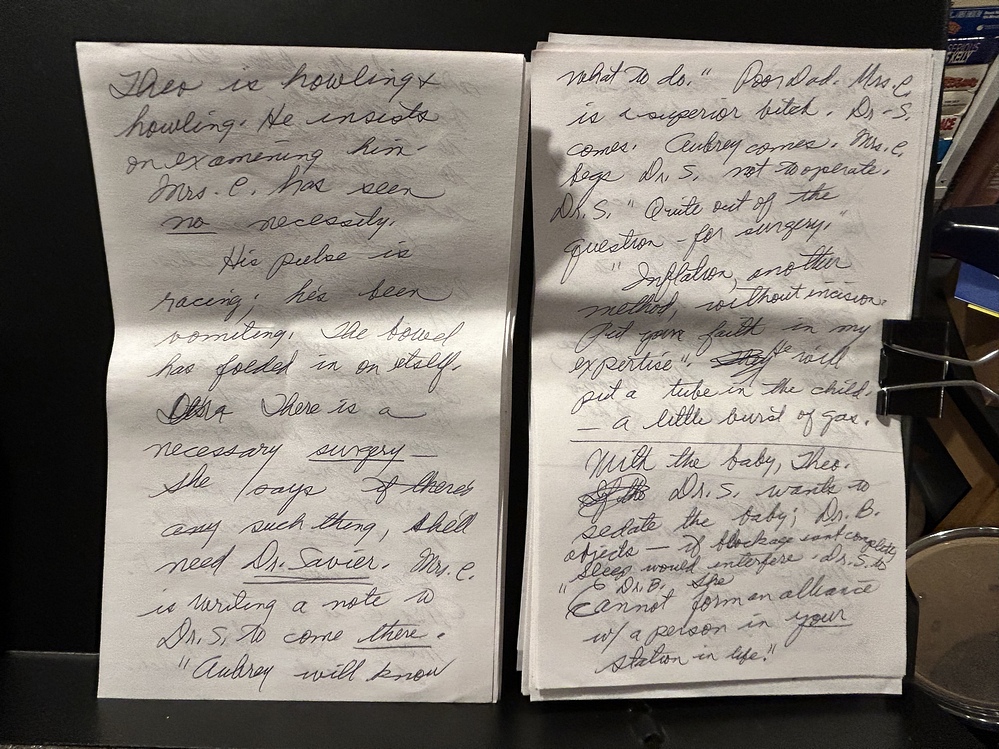 Theo is howling &
howling. He insists
on examening him.
Mrs. C. has seen
no necessity.
His pulse is
racing; he's been
vomiting. The bowel
has folded in on itself.
There is a
necessary surgery —
she says if there's
any such thing, she'll
need Dr. Savier. Mrs. C.
is writing a note to
Dr. S. to come there.
"Aubrey will know
what to do." Poor Dad. Mrs. C.
is a superior bitch. Dr. S.
comes. Aubrey comes. Mrs. C.
begs Dr. S. not to operate.
Dr. S. "Quite out of the
question - for surgery."
"Inflation, another
method, without incision.
Put your faith in my
expertise". He will
put a tube in the child.
— a little burst of gas.
With the baby, Theo.
Dr. S. wants to
sedate the baby; Dr. B.
objects — if blockage isnt complete
sleep would interfere. Dr. S. to
Dr. B. She
"Cannot form an alliance
w/ a person in your
station in life."